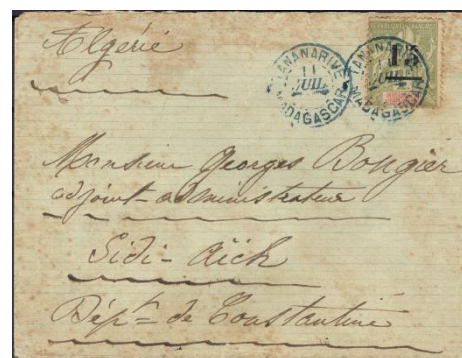 Algérie
TANANARIVE
11
JUIL
MADAGASCAR
TANANARIVE
11
JUIL
MADAGASCAR
15
Monsieur Georges Bougier
adjoint-administrateur
Sidi-Aïch
Dépt de Constantine